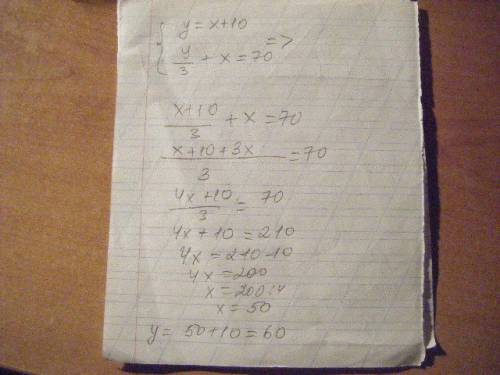 { y = x+10
y/3 + x = 70 =>
(x+10)/3 + x = 70
(x+10+3x)/3 = 70
(4x+10)/3 = 70
4x + 10 = 210
4x = 210-10
4x = 200
x = 200:4
x = 50
y = 50+10 = 60